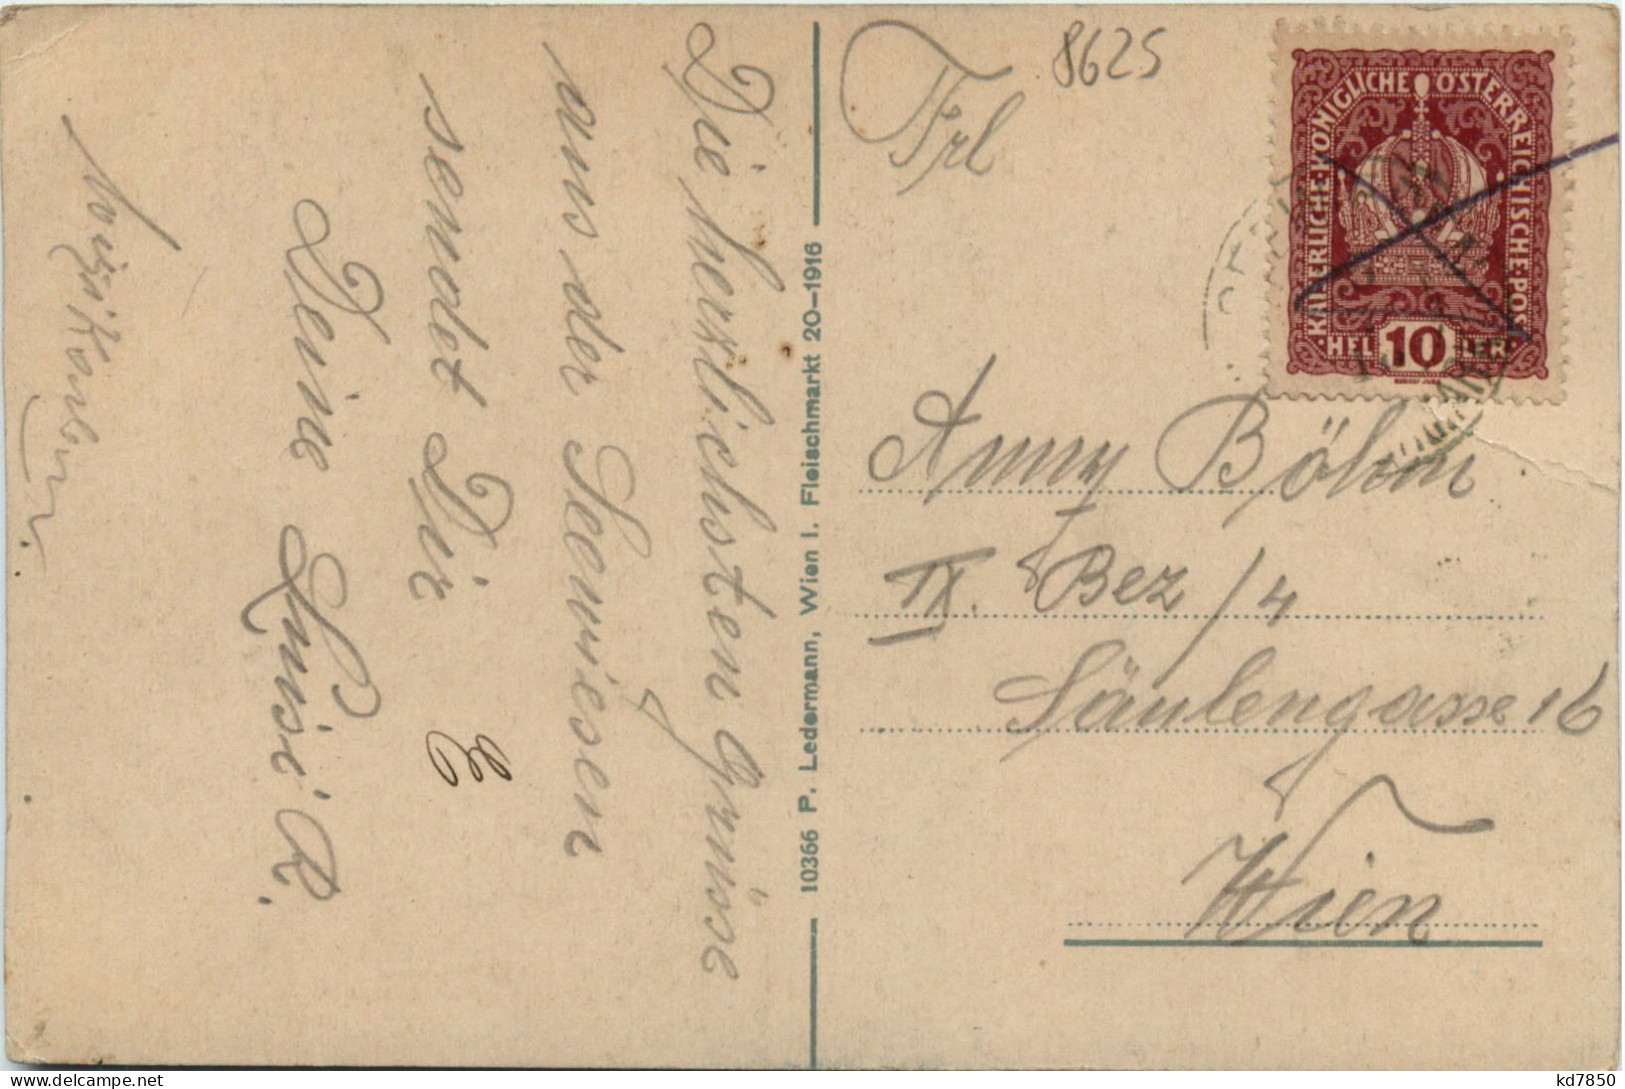 Die herzlichsten Grüsse
aus der Seewiesen
sendet Dir
Deine Luise R.
10366 P. Ledermann, Wien I. Fleischmarkt 20-1916
Frl
8625
KAISERLICHE·KÖNIGLICHE ÖSTERREICHISCHE·POST
HELLER
10
Anny Böhm
IX. Bez/4
Säulengasse 16
Wien
kd7850